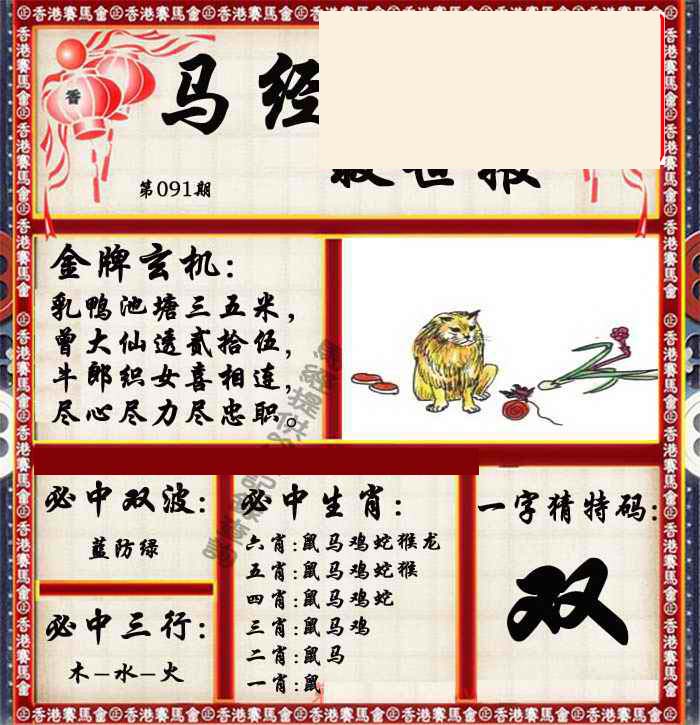 香港賽馬會
香
马经
救世报
第091期
金牌玄机:
乳鸭池塘三五米,
曾大仙透贰拾伍,
牛郎织女喜相连,
尽心尽力尽忠职。
必中双波:
蓝防绿
必中三行:
木-水-火
必中生肖:
六肖:鼠马鸡蛇猴龙
五肖:鼠马鸡蛇猴
四肖:鼠马鸡蛇
三肖:鼠马鸡
二肖:鼠马
一肖:鼠
一字猜特码:
双